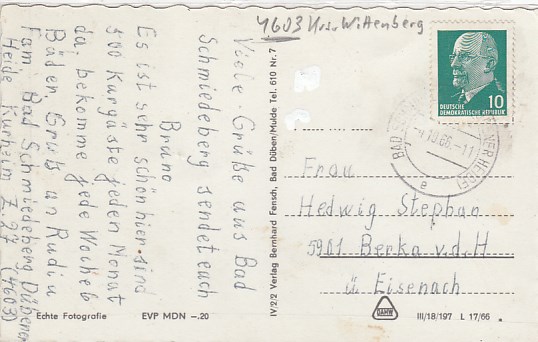 4603 Krs. Wittenberg
Viele Grüße aus Bad
Schmiedeberg sendet euch
Bruno
Es ist sehr schön hier. sind
500 Kurgäste jeden Monat
da, bekomme jede Woche 6
Bäder, Gruß an Rudi u
Fam. Bad Schmiedeberg Dübener
Heide Kurheim Z. 27 (4603)
Echte Fotografie EVP MDN –.20
IV/2/2 Verlag Bernhard Fensch, Bad Düben/Mulde Tel. 610 Nr. 7
DEUTSCHE
DEMOKRATISCHE REPUBLIK
10
BAD
ER HEIDE)
10.66.-11
e
Frau
Hedwig Stephan
5901 Berka v.d.H
ü Eisenach
DAHW
III/18/197 L 17/66